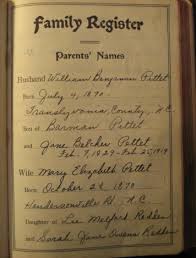 Family Register
Parents' Names
Husband William Benjamin Pettet
Born July 4, 1870-
Transylvania, County, N.C.
Son of Harman Pettet
and Jane Belcher Pettet
Feb. 7, 1829 - Feb 25, 1919
Wife Mary Elizabeth Pettet
Born October 28, 1870
Hendersonville Rt. N.C.
Daughter of Lee Medford Redden
and Sarah Jane Owens Redden